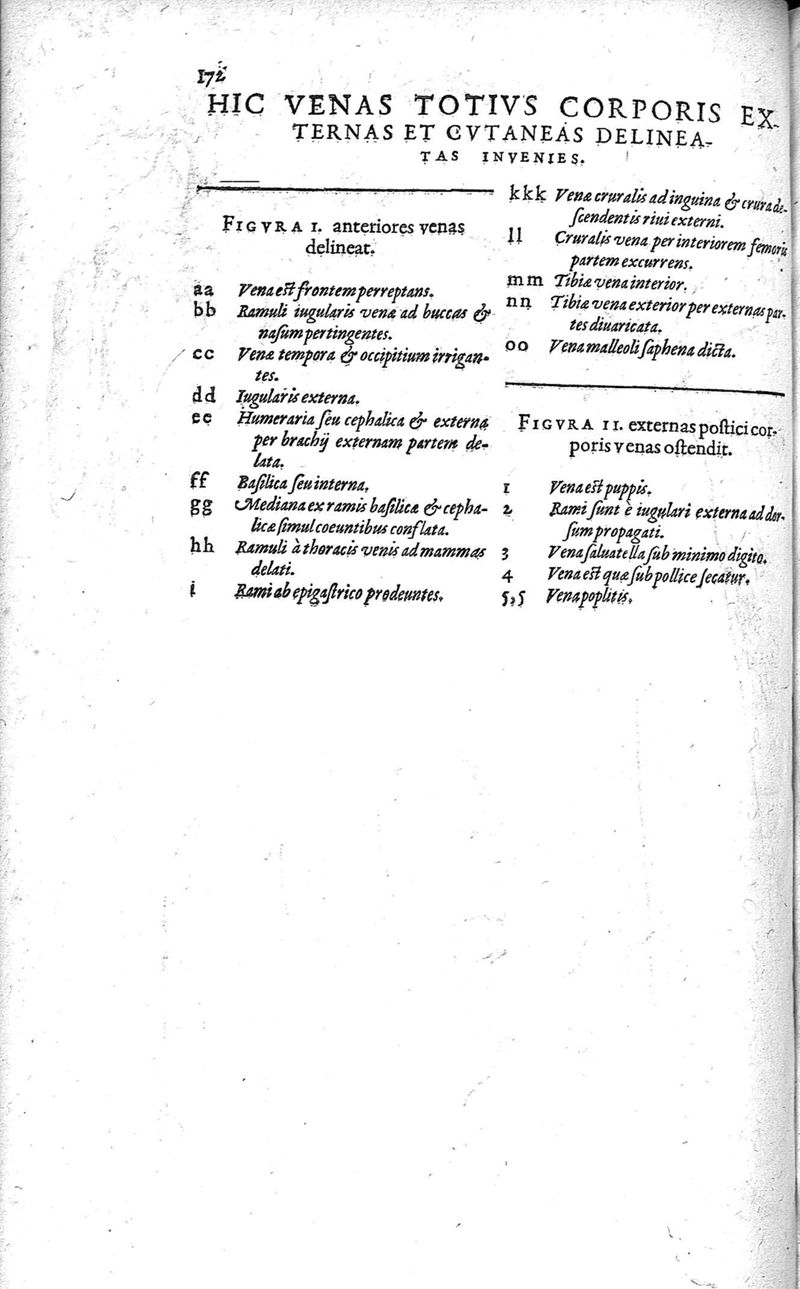 172
HIC VENAS TOTIVS CORPORIS EX-
TERNAS ET CVTANEAS DELINEA-
TAS INVENIES.
FIGVRA I. anteriores venas
delineat.
aa Vena est frontem perreptans.
bb Ramuli iugularis venæ ad buccas &
naſum pertingentes.
cc Venæ tempora & occipitium irrigan-
tes.
dd Iugularis externa.
ee Humeraria ſeu cephalica & externa
per brachij externam partem de-
lata.
ff Baſilica ſeu interna.
gg Mediana ex ramis baſilicæ & cepha-
licæ ſimul coeuntibus conflata.
hh Ramuli à thoracis venis ad mammas
delati.
i Rami ab epigaſtrico prodeuntes.
kkk Venæ cruralis ad inguina & crura de-
ſcendentis riui externi.
ll Cruralis vena per interiorem femoris
partem excurrens.
mm Tibiæ vena interior.
nn Tibiæ vena exterior per externas par-
tes diuaricata.
oo Vena malleoli ſaphena dicta.
FIGVRA II. externas poſtici cor-
poris venas oſtendit.
1 Vena eſt puppis.
2 Rami ſunt è iugulari externa ad dor-
ſum propagati.
3 Vena ſaluatella ſub minimo digito.
4 Vena eſt quæ ſub pollice ſecatur.
5,5 Vena poplitis.